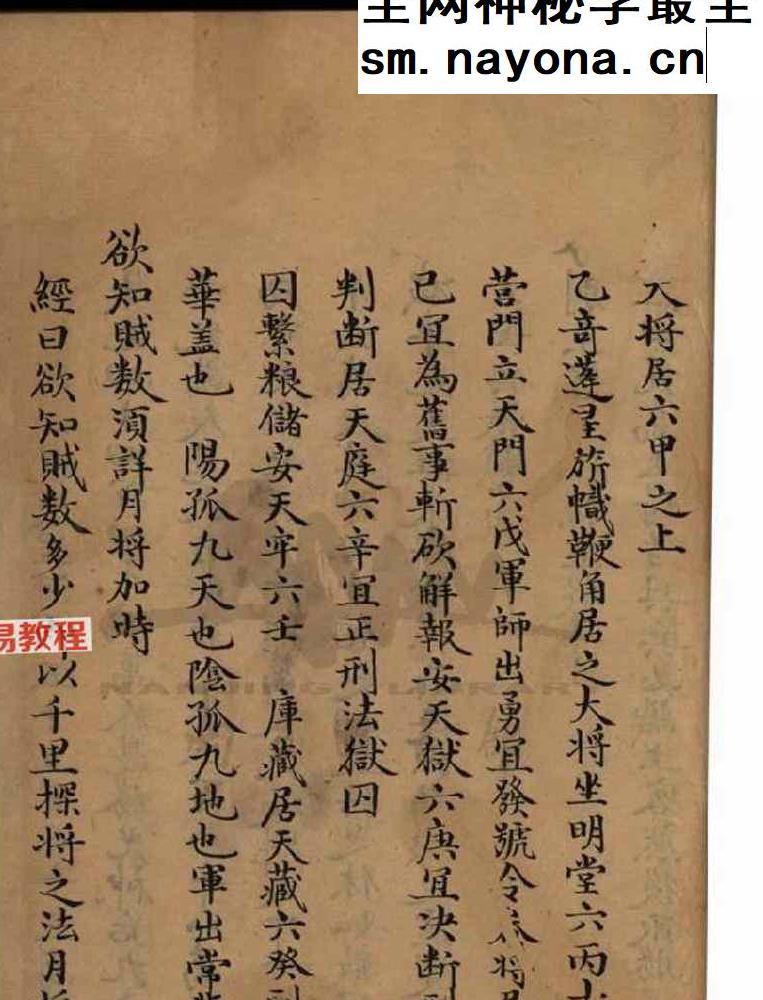 sm.nayona.cn
大将居六甲之上
乙竒蓬星旂幟鞭角居之大将坐明堂六丙
營門立天門六戊軍師出勇冝發號令
已冝為舊事斬砍解報安天獄六庚冝决断
判断居天庭六辛冝正刑法獄囚
囚繫粮儲安天牢六壬 庫藏居天藏六癸
華盖也 陽孤九天也陰孤九地也軍出常
欲知賊数湏詳月将加時
經曰欲知賊数多少 以千里探将之法月
易教程